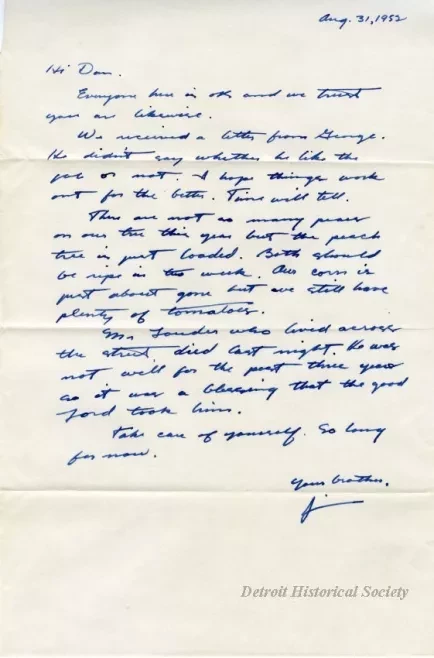 Aug. 31, 1952
Hi Dan.
Everyone here is ok and we trust
you are likewise.
We received a letter from George.
He didn't say whether he like the
job or not. I hope things work
out for the better. Time will tell.
There are not as many pears
on our tree this year but the peach
tree is just loaded. Both should
be ripe in two week. Our corn is
just about gone but we still have
plenty of tomatoes.
Mr. who lived across
the street, died last night. He was
not well for the past three years
so it was a blessing that the good
Lord took him.
Take care of yourself. So long
for now.
Your brother,
Detroit Historical Society